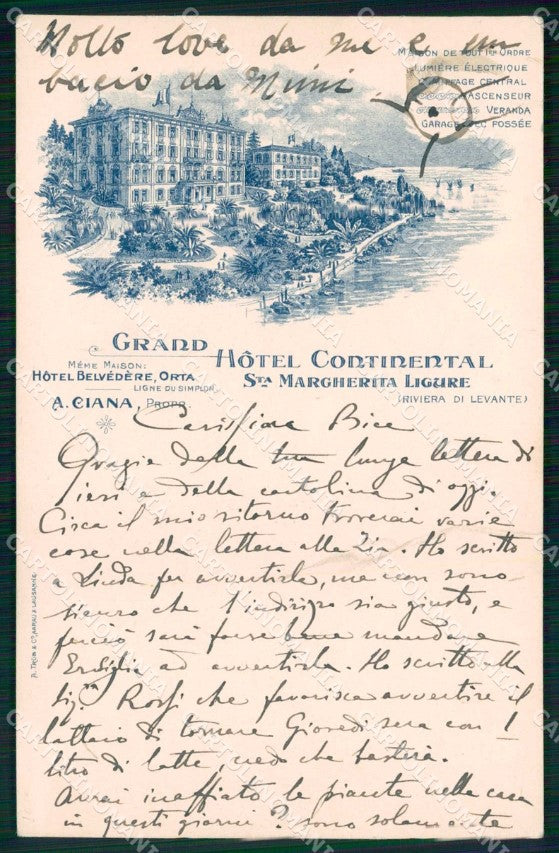 Molto love da me e un
bacio da Mimi
MAISON DE TOUT 1ER ORDRE
LUMIÈRE ÉLECTRIQUE
CHAUFFAGE CENTRAL
ASCENSEUR
VERANDA
GARAGE AVEC FOSSÉE
GRAND HÔTEL CONTINENTAL
STA MARGHERITA LIGURE
(RIVIERA DI LEVANTE)
MÊME MAISON:
HÔTEL BELVÉDÈRE, ORTA
LIGNE DU SIMPLON
A. CIANA, PROPR.
Carissima Bice
Grazie della tua lunga lettera di
ieri e della cartolina di oggi.
Circa il mio ritorno troverai varie
cose nella lettera alla Zia. Ho scritto
a Linda per avvertirla, ma non sono
sicuro che l'indirizzo sia giusto, e
perciò sarà forse bene mandare
Ersilia ad avvertirla. Ho scritto alla
Sigra Rossi che favorisca avvertire il
lattaio di tornare Giovedì sera con 1
litro di latte credo che basterà.
Avrai inaffiato le piante nella casa
in questi giorni? sono solamente
A. TRÜB & CIE, AARAU & LAUSANNE
CARTOLINOMANIA